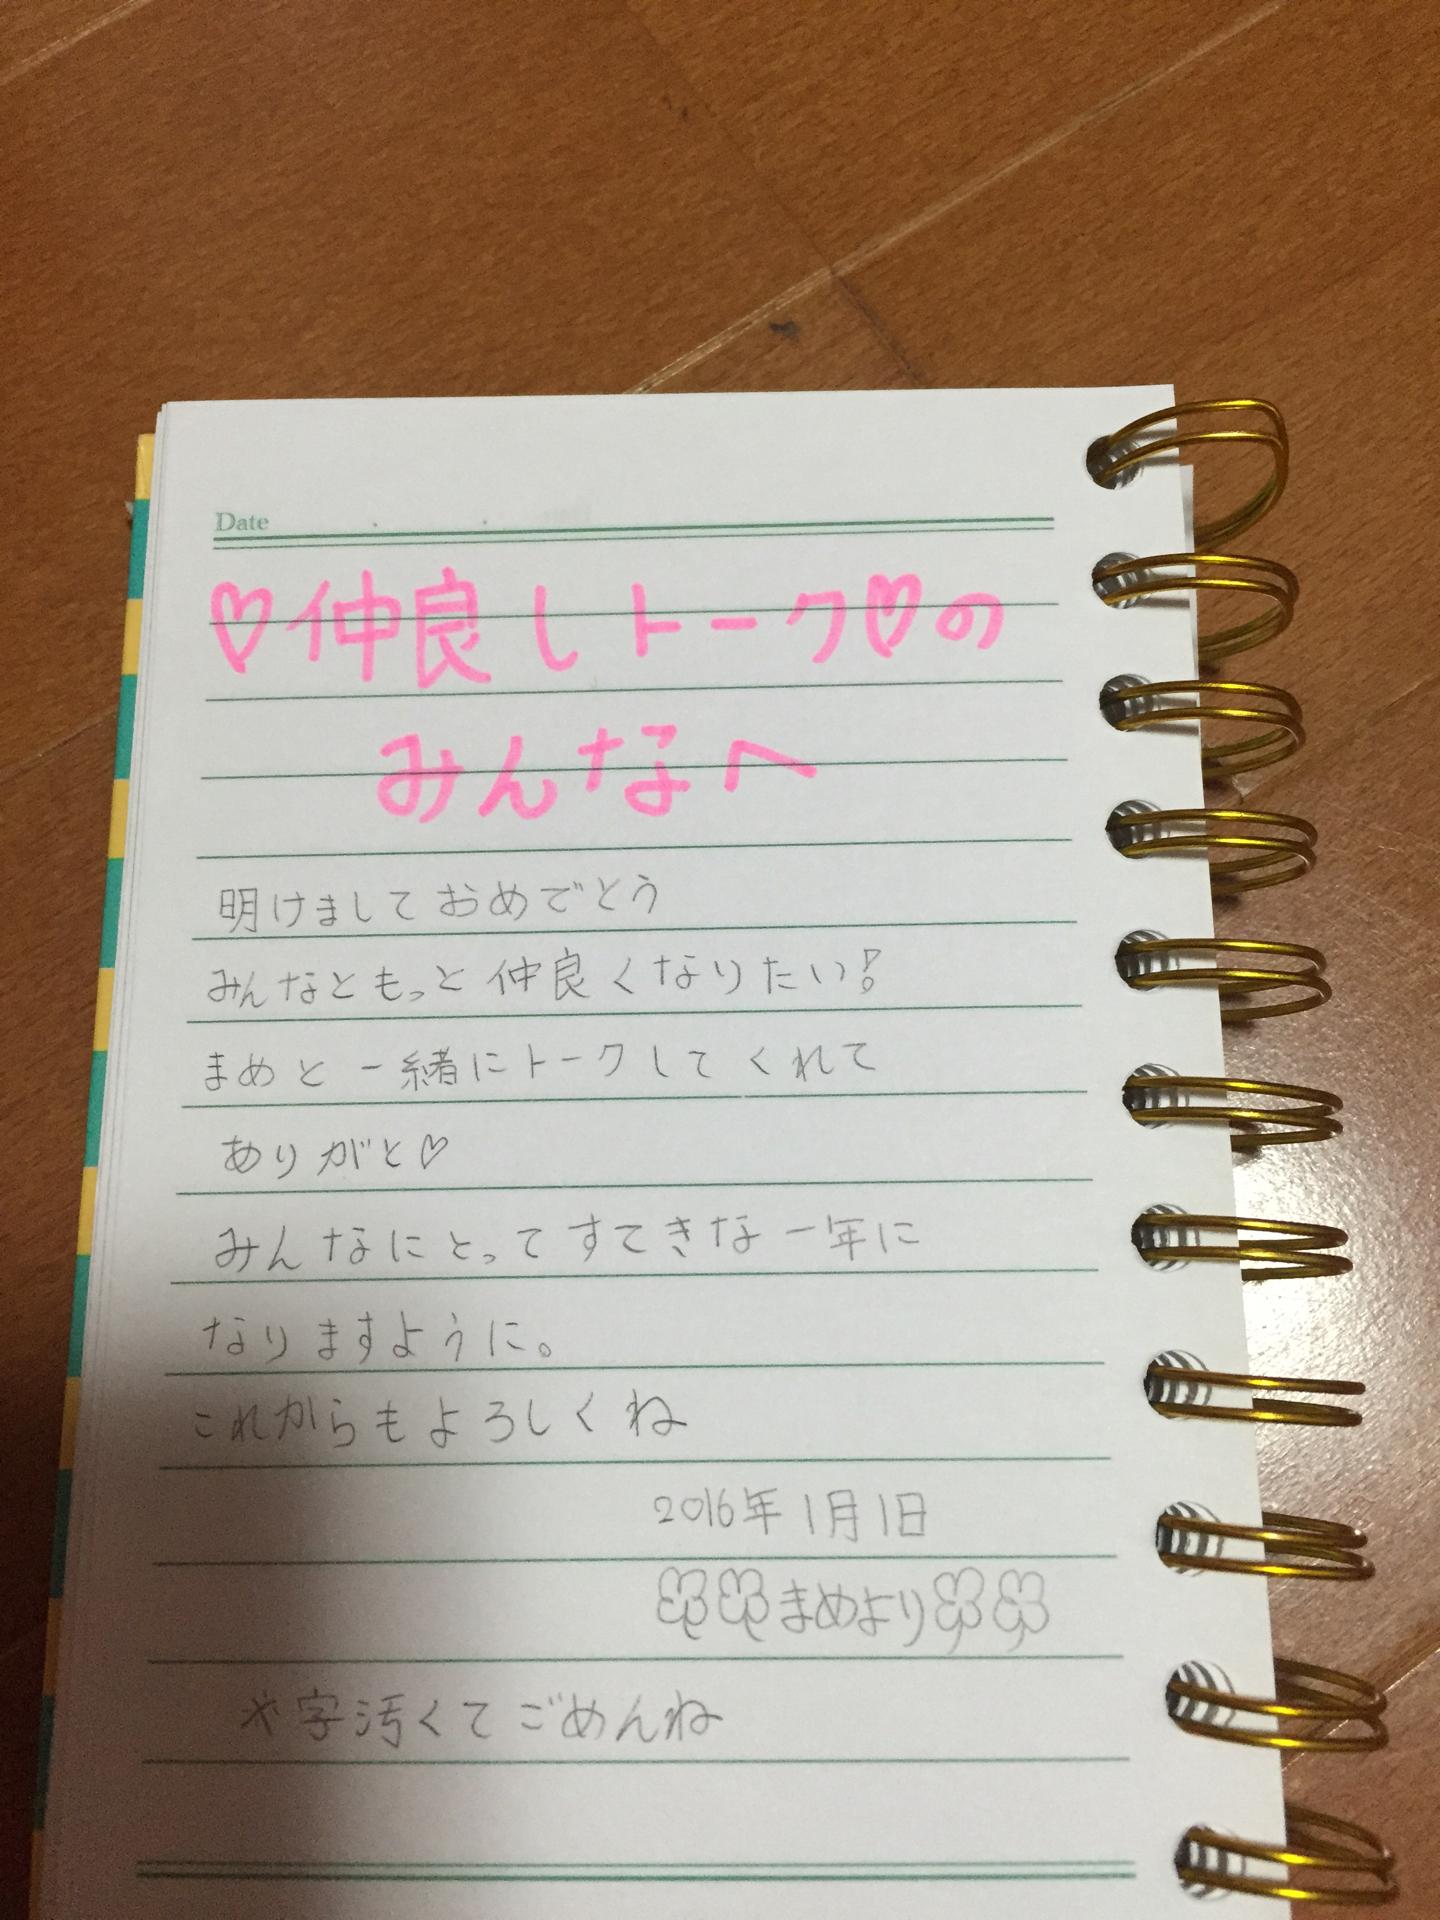 Date
♡仲良しトーク♡の
みんなへ
明けましておめでとう
みんなともっと仲良くなりたい!
まめと一緒にトークしてくれて
ありがと♡
みんなにとってすてきな一年に
なりますように。
これからもよろしくね
2016年1月1日
まめより
※字汚くてごめんね